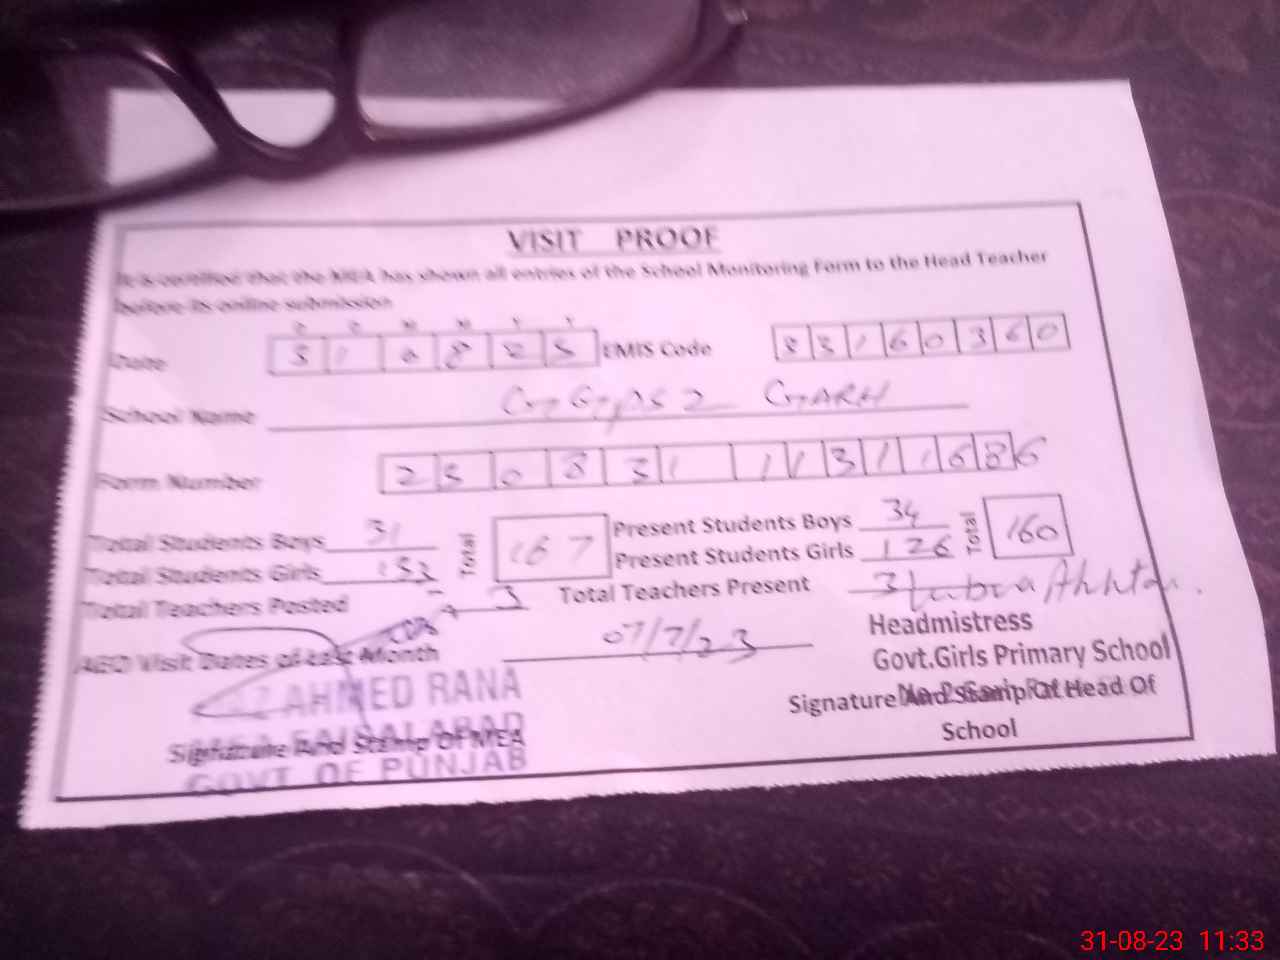 VISIT PROOF
It is certified that the MEA has shown all entries of the School Monitoring Form to the Head Teacher
before its online submission
D D M M Y Y
Date 31 08 23 EMIS Code 33160360
School Name GGPS 2 GARH
Form Number 230831 11311686
Total Students Boys 31 Total 167 Present Students Boys 34 Total 160
Total Students Girls Present Students Girls 126
Total Teachers Posted 3 Total Teachers Present 3
AEO Visit Dates of Last Month 07/7/23
Headmistress
Govt.Girls Primary School
AHMED RANA
Signature And Stamp Of Head Of
School
Signature And Stamp Of MEA
FAISALABAD
GOVT OF PUNJAB
31-08-23 11:33